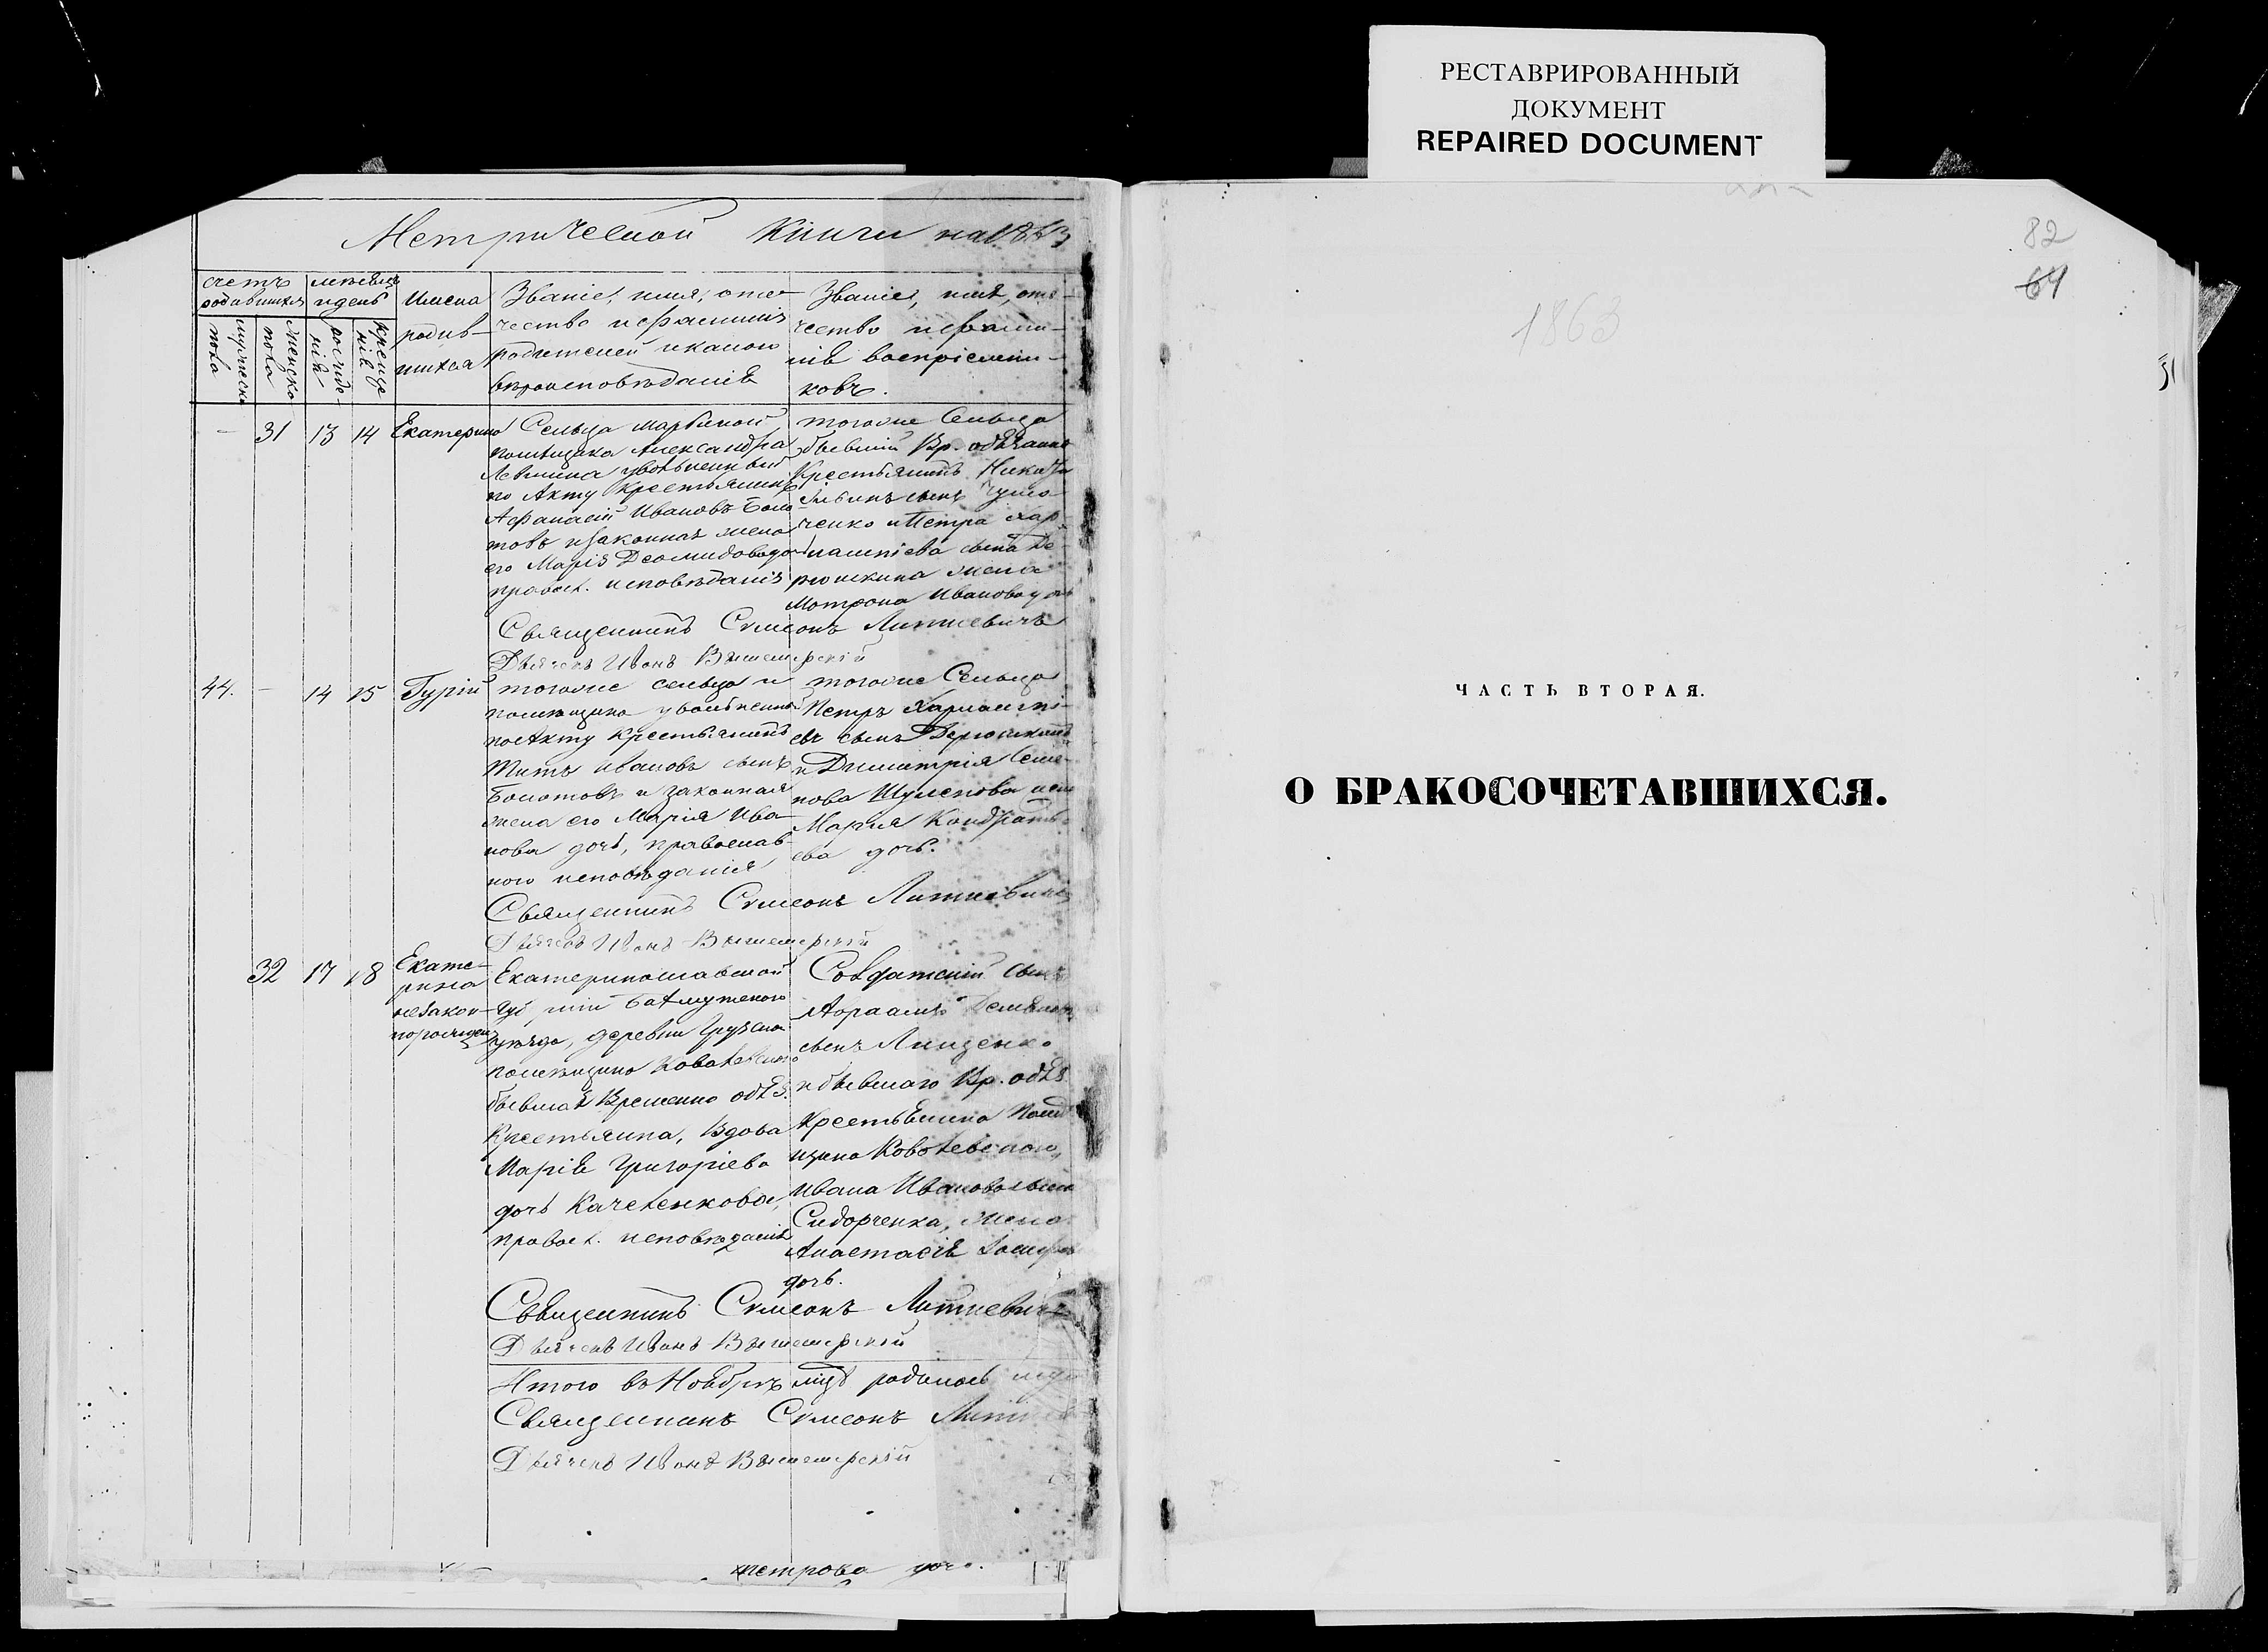 РЕСТАВРИРОВАННЫЙ
ДОКУМЕНТ
REPAIRED DOCUMENT
Метрической Книги на 1863
счетъ родившихся
мужеска пола
женска пола
месяцъ и день
рожденія
крещенія
Имена
родив-
шихся
Званіе, имя, оте-
чество и фамилія
родителей и какого
вѣроисповѣданія
Званіе, имя, оте-
чество и фами-
лія воспріемни-
ковъ.
- 31 13 14 Екатерина
Сельца
помѣщика Александра
уволеный
по Акту крестьянинъ
Афанасій Ивановъ Боло-
товъ и законная жена
его Марія
правосл. исповѣданія
тогоже Сельца
бывшій Вр. обязан
Крестьянинъ
сынъ Чума-
ченко и Петра Хар-
лампіева сына Де-
рюшкина жена
Матрона Иванова
Священникъ Сѵмеонъ
Дьячекъ Иванъ
44. - 14 15 Гурій
тогоже сельца и
помѣщика уволенный
по Акту крестьянинъ
Титъ Ивановъ сынъ
Болотовъ и законная
жена его Марія Ива-
нова дочь, православ-
ного исповѣданія
тогоже Сельца
Петръ Харлампі-
евъ сынъ Дерюшкинъ
и Димитрія Семе-
нова
Марія Кондрать-
ева дочь.
Священникъ Сѵмеонъ
Дьячекъ Иванъ
32 17 18
Екате-
рина
незакон-
норожден
Екатеринославской
губ͠рніи Бахмутского
уѣзда, деревни Грузска
помѣщика Ковалевскаго
бывшая Временно обяз.
Крестьянка, Вдова
Марія Григоріева
дочь Каченкова,
правосл. исповѣданія
Солдатскій сынъ
Авраамъ
сынъ Лищенко
и бывшаго Вр. обяз.
Крестьянина Помѣ-
щика Ковалевскаго,
Ивана Иванова сына
Сидорченка, жена
Анастасія
дочь.
Священникъ Сѵмеонъ
Дьячекъ Иванъ
Итого въ Ноябрѣ м͠цѣ родилось
Священникъ Сѵмеонъ
Дьячекъ Иванъ
петрова дочь.
82
64
1863
31
ЧАСТЬ ВТОРАЯ.
О БРАКОСОЧЕТАВШИХСЯ.